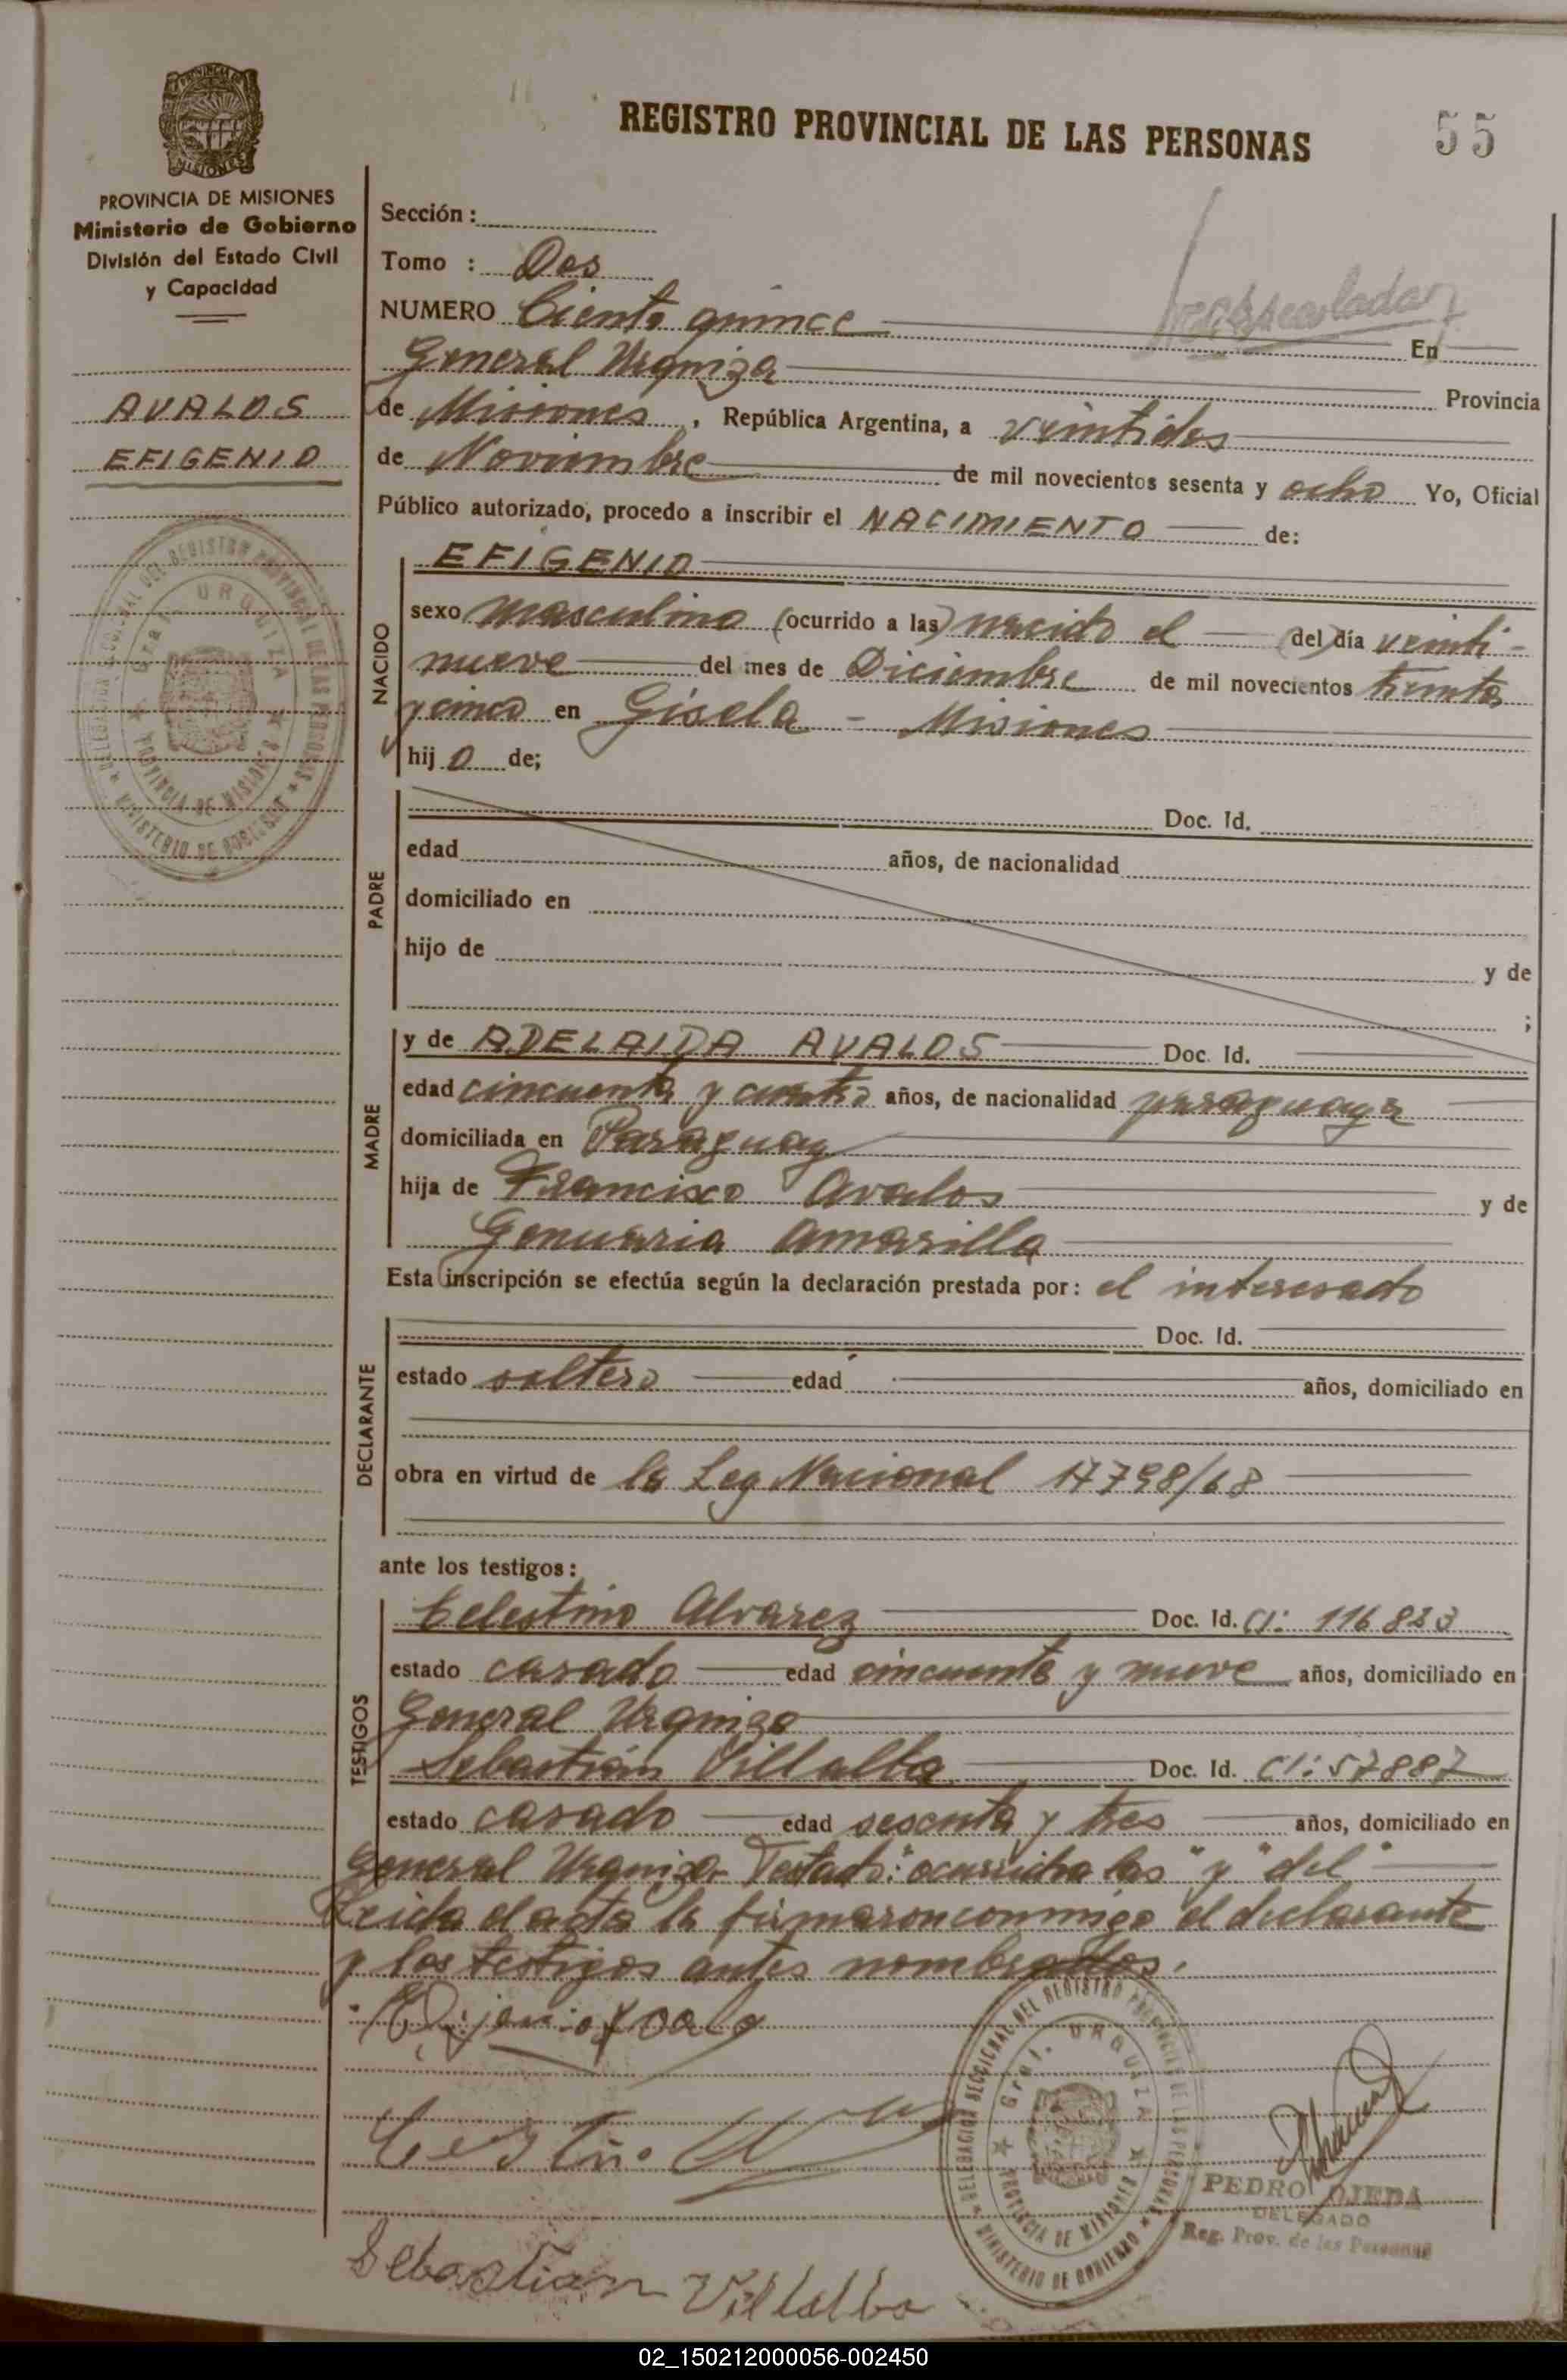 REGISTRO PROVINCIAL DE LAS PERSONAS
55
PROVINCIA DE MISIONES
Ministerio de Gobierno
División del Estado Civil
y Capacidad
AVALOS
EFIGENIO
Sección :
Tomo : Dos
NUMERO Ciento quince En
General Urquiza Provincia
de Misiones, República Argentina, a veintidos
de Noviembre de mil novecientos sesenta y ocho Yo, Oficial
Público autorizado, procedo a inscribir el NACIMIENTO de:
NACIDO
EFIGENIO
sexo masculino (ocurrido a las) nacido el (del) día veinti-
nueve del mes de Diciembre de mil novecientos treinta
y cinco en Gisela - Misiones
hijo de;
PADRE
Doc. Id.
edad años, de nacionalidad
domiciliado en
hijo de y de
;
MADRE
y de ADELAIDA AVALOS Doc. Id.
edad cincuenta y cuatro años, de nacionalidad paraguaya
domiciliada en Paraguay
hija de Francisco Avalos y de
Genuaria Amarilla
Esta inscripción se efectúa según la declaración prestada por: el interesado
DECLARANTE
Doc. Id.
estado soltero edad años, domiciliado en
obra en virtud de la Ley Nacional 17798/68
ante los testigos:
TESTIGOS
Celestino Alvarez Doc. Id. CI: 116
estado casado edad cincuenta y nueve años, domiciliado en
General Urquiza
Sebastián Villalba Doc. Id. CI: 57887
estado casado edad sesenta y tres años, domiciliado en
General Urquiza- Testado: "ocurrido a las" y "del"
Leida el acta la firmaron conmigo el declarante
y los testigos antes nombrados.
Sebastian Villalba
DELEGACION SECCIONAL DEL REGISTRO PROVINCIAL DE LAS PERSONAS
MINISTERIO DE GOBIERNO
Gral. URQUIZA
PROVINCIA DE MISIONES
PEDRO OJEDA
DELEGADO
Reg. Prov. de las Personas
02_150212000056-002450